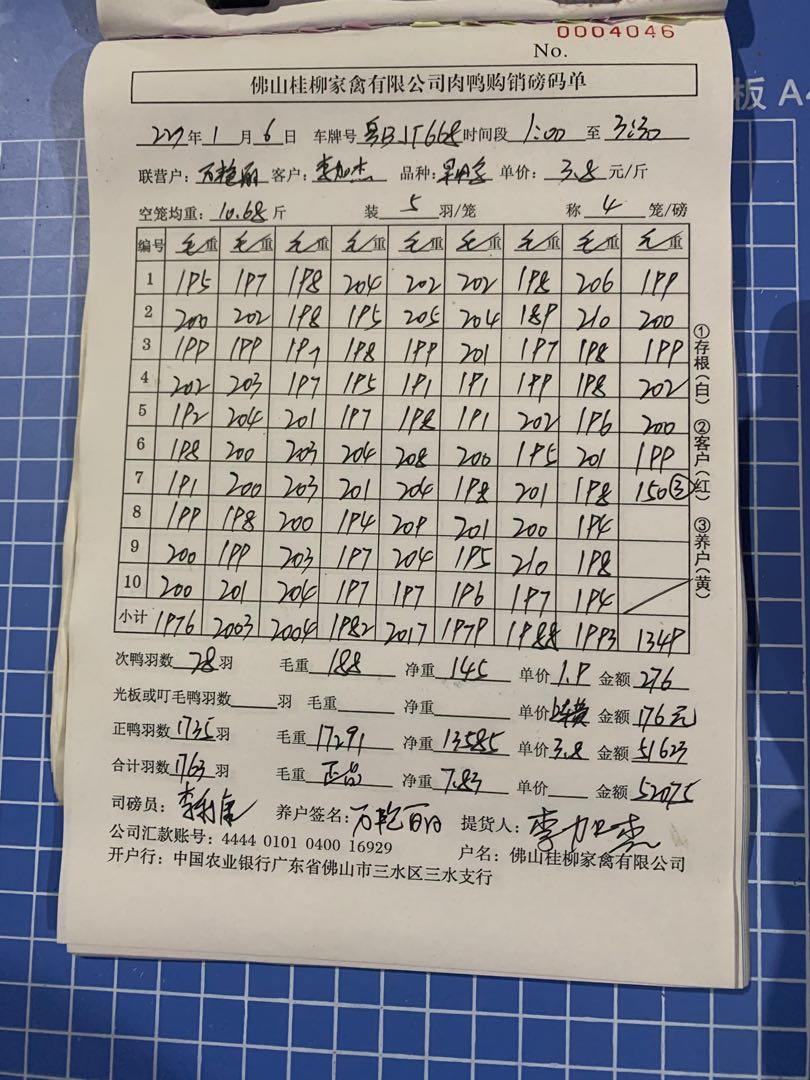 0004046
No.
板 A4
佛山桂柳家禽有限公司肉鸭购销磅码单
年 1 月 6 日 车牌号 粤BJT668 时间段 1:00 至 3:30
联营户: 万艳丽 客户: 李加杰 品种: 单价: 3.8 元/斤
空笼均重: 10.68 斤 装 5 羽/笼 称 4 笼/磅
编号 毛重 毛重 毛重 毛重 毛重 毛重 毛重 毛重 毛重
1 195 197 198 204 202 202 198 206 199
2 200 202 198 195 205 204 189 210 200
3 199 199 197 198 199 201 197 198 199
4 202 203 197 195 191 191 199 198 202
5 192 204 201 197 198 191 202 196 200
6 198 200 203 204 208 200 195 201 199
7 191 200 203 201 204 198 201 198 150③
8 199 198 200 194 209 201 200 194
9 200 199 203 197 204 195 210 198
10 200 201 204 197 197 196 197 194
小计 1976 2003 2004 1982 2017 1979 1988 1993 1349
次鸭羽数 28 羽 毛重 188 净重 145 单价 1.9 金额 276
光板或叮毛鸭羽数 羽 毛重 净重 单价 金额 176元
正鸭羽数 1735 羽 毛重 17291 净重 13585 单价 3.8 金额 51623
合计羽数 1763 羽 毛重 正品 净重 7.83 单价 金额 52075
司磅员: 养户签名: 万艳丽 提货人: 李加杰
公司汇款账号: 4444 0101 0400 16929 户名: 佛山桂柳家禽有限公司
开户行: 中国农业银行广东省佛山市三水区三水支行
①存根(白) ②客户(红) ③养户(黄)